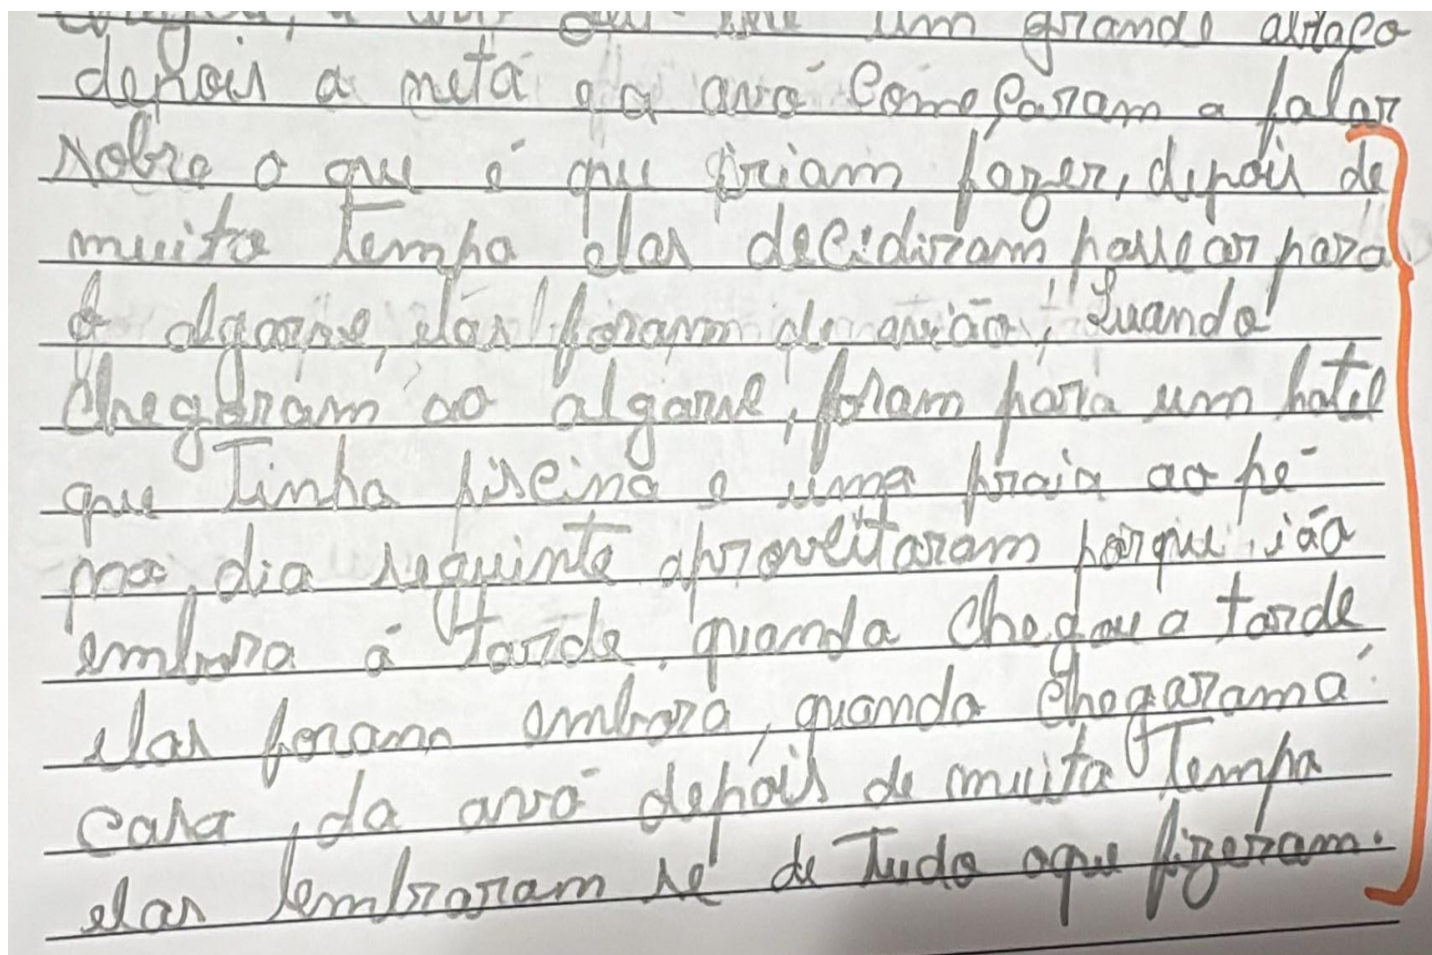 um grande abraço
depois a neta e a avó começaram a falar
sobre o que é que iriam fazer, depois de
muito tempo elas decidiram passear para
o algarve, elas foram de avião, Quando
chegaram ao algarve, foram para um hotel
que tinha piscina e uma praia ao pé
dia seguinte aproveitaram porque ião
embora á tarde, quando chegou a tarde
elas foram embora, quando chegaram á
casa da avó depois de muito tempo
elas lembraram se de tudo oque fizeram.